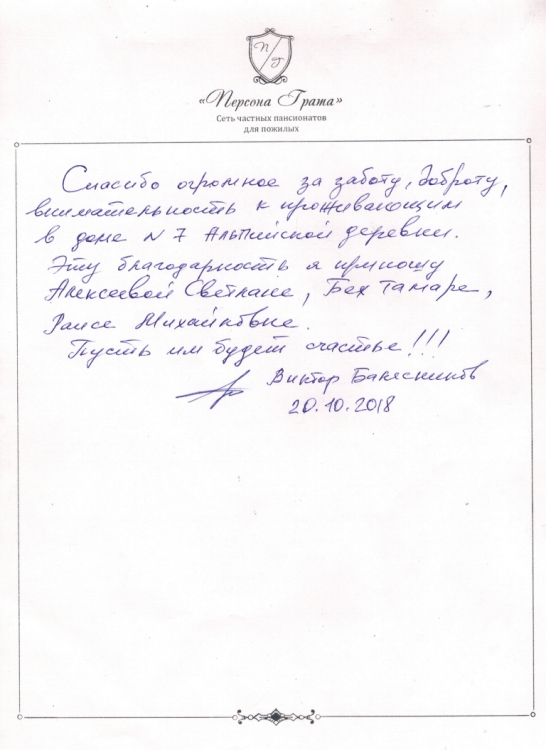 П Г
«Персона Грата»
Сеть частных пансионатов
для пожилых
Спасибо огромное за заботу, доброту,
внимательность к проживающим
в доме N 7 Альпийской деревни.
Эту благодарность я приношу
Алексеевой Светлане, Бех Тамаре,
Раисе Михайловне.
Пусть им будет счастье!!!
Виктор
20.10.2018